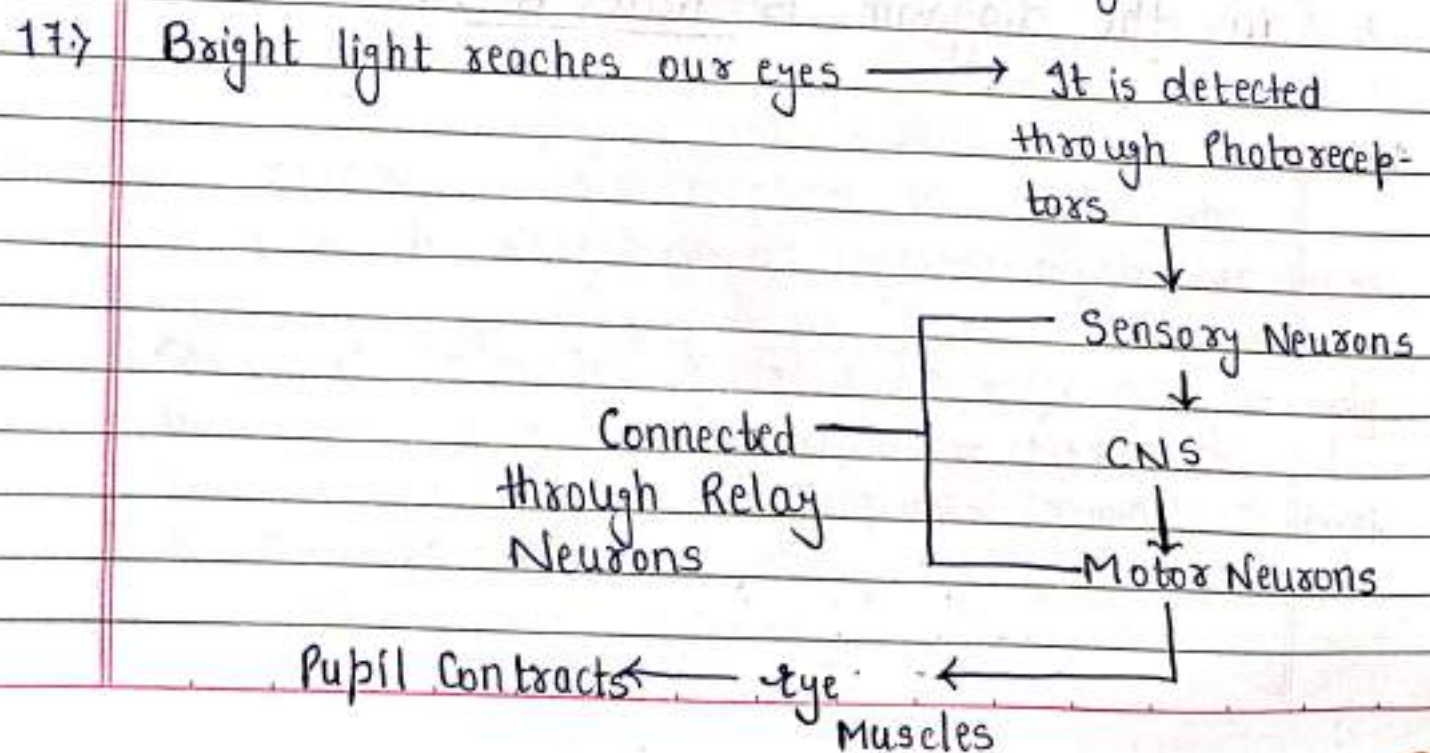 17.) Bright light reaches our eyes → It is detected
through Photorecep-
tors
↓
Sensory Neurons
↓
CNS
↓
Motor Neurons
Connected
through Relay
Neurons
Pupil Contracts ← eye ←
Muscles